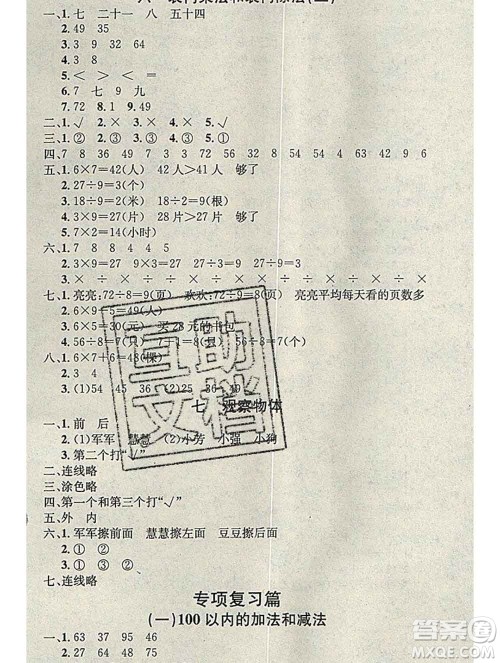 六 表内乘法和表内除法(二)
一、1.七 二十一 八 五十四
2.49 35
3.③ ②
4.90
5.< > = =
6.7 七 9 九
7.72 8.1 9.49
二、1.√ 2.× 3.× 4.× 5.×
三、1.① ② 2.③ 3.③ 4.② 5.①
四、7 8 36 49 7 3 72 56 9 32 54 54 4 42 9 6
五、1.6×7=42(人) 42人>41人 够了
2.27÷9=3(个)
3.18÷9=2(米) 18÷2=9(根)
4.3×9=27(片) 28片>27片 够了
5.7×2=14(小时)
六、1.7 8 8 4 4 5
2.3×9=27 9×3=27 27÷3=9 27÷9=3
3.× ÷ × ÷ × ÷ ÷ ÷ × ×
七、1.亮亮:72÷8=9(页) 欢欢:72÷9=8(页) 亮亮平均每天看的页数多
2.6×9=54(岁)
3.6×5=30(元) 买28元的书包
4.56÷8=7 56÷7=8
八、1.6×7+6=48(棵)
2.
3.(1)54 45 36 (2)25 36 49
七 观察物体
一、1.前 后
2.(1)军军 慧慧 (2)小芳 小强 小狗
3.第二个打“√”
二、连线略
三、涂色略
四、第一个和第三个打“√”
五、外 内
六、1.军军擦前面 慧慧擦左面 豆豆擦后面
2.① ② ③
3.② ①
七、连线略
专项复习篇
(一)100以内的加法和减法
一、1.63 37 95 46
2.27 28 54 75
互助文档
答案圈
MXQE.COM